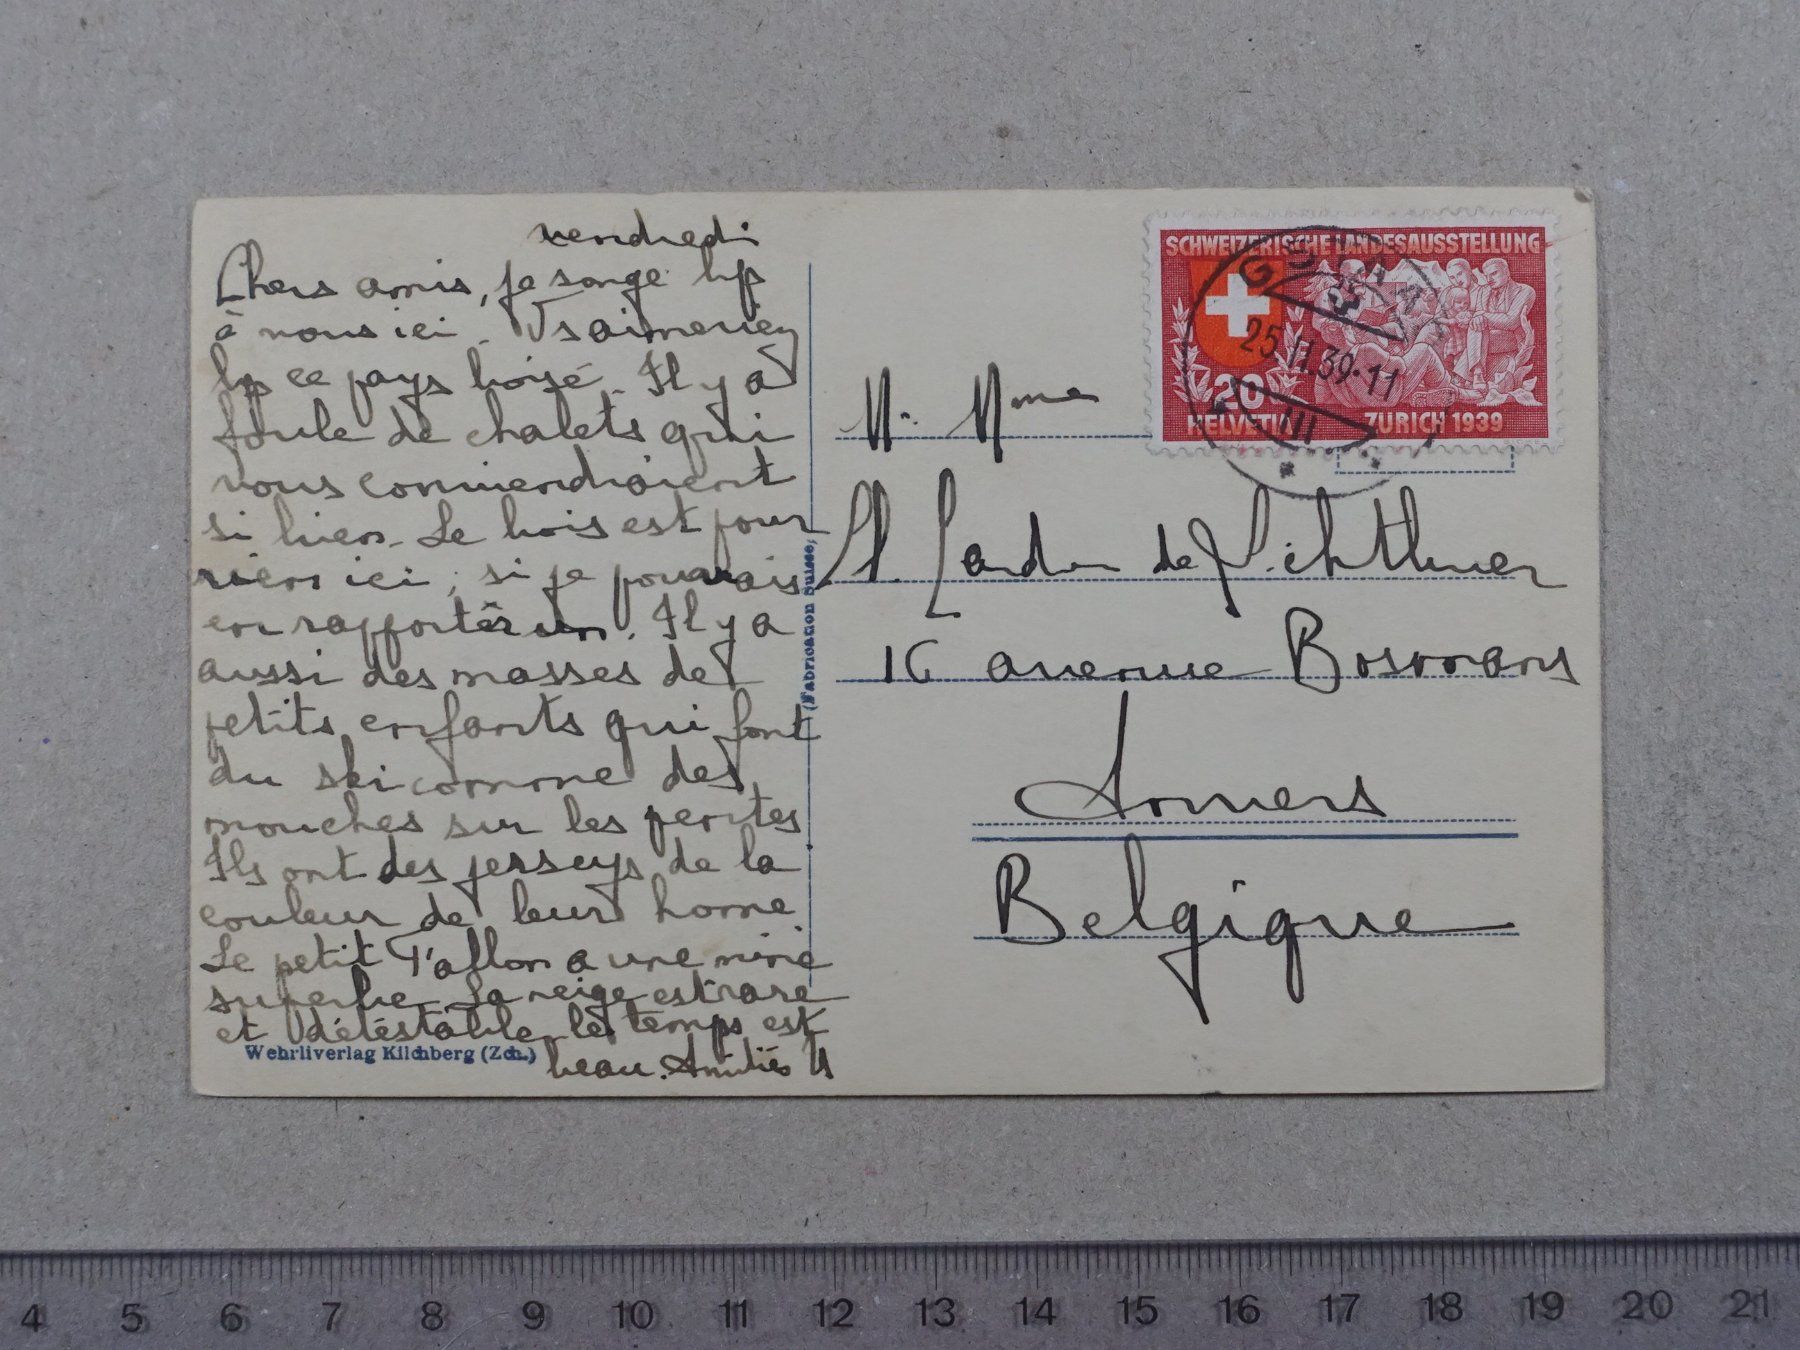 vendredi
Chers amis, je songe bp
à vous ici. Vs aimeriez
bp ce pays boisé. Il y a
foule de chalets qui
vous conviendraient
si bien. Le bois est pour
rien ici, si je pouvais
en rapporter un. Il y a
aussi des masses de
petits enfants qui font
du ski comme des
mouches sur les pentes
Ils ont des jerseys de la
couleur de leur home
Le petit a une mine
superbe. La neige est rare
et détestable le temps est
beau. Amitiés
Wehrliverlag Kilchberg (Zch.)
(Fabrication Suisse)
SCHWEIZERISCHE LANDESAUSSTELLUNG
20
HELVETIA ZURICH 1939
GSTAAD
25.II.39-11
III
M. Mme
de
16 avenue Bosmans
Anvers
Belgique
4 5 6 7 8 9 10 11 12 13 14 15 16 17 18 19 20 21